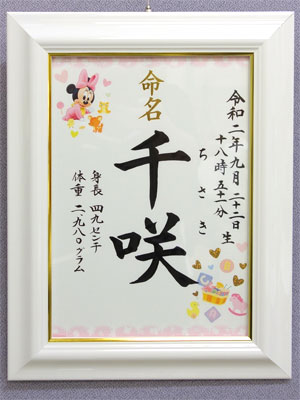 令和二年九月二十二日生
十八時五十一分
ちさき
命名
千咲
身長 四九センチ
体重 二、九八〇グラム